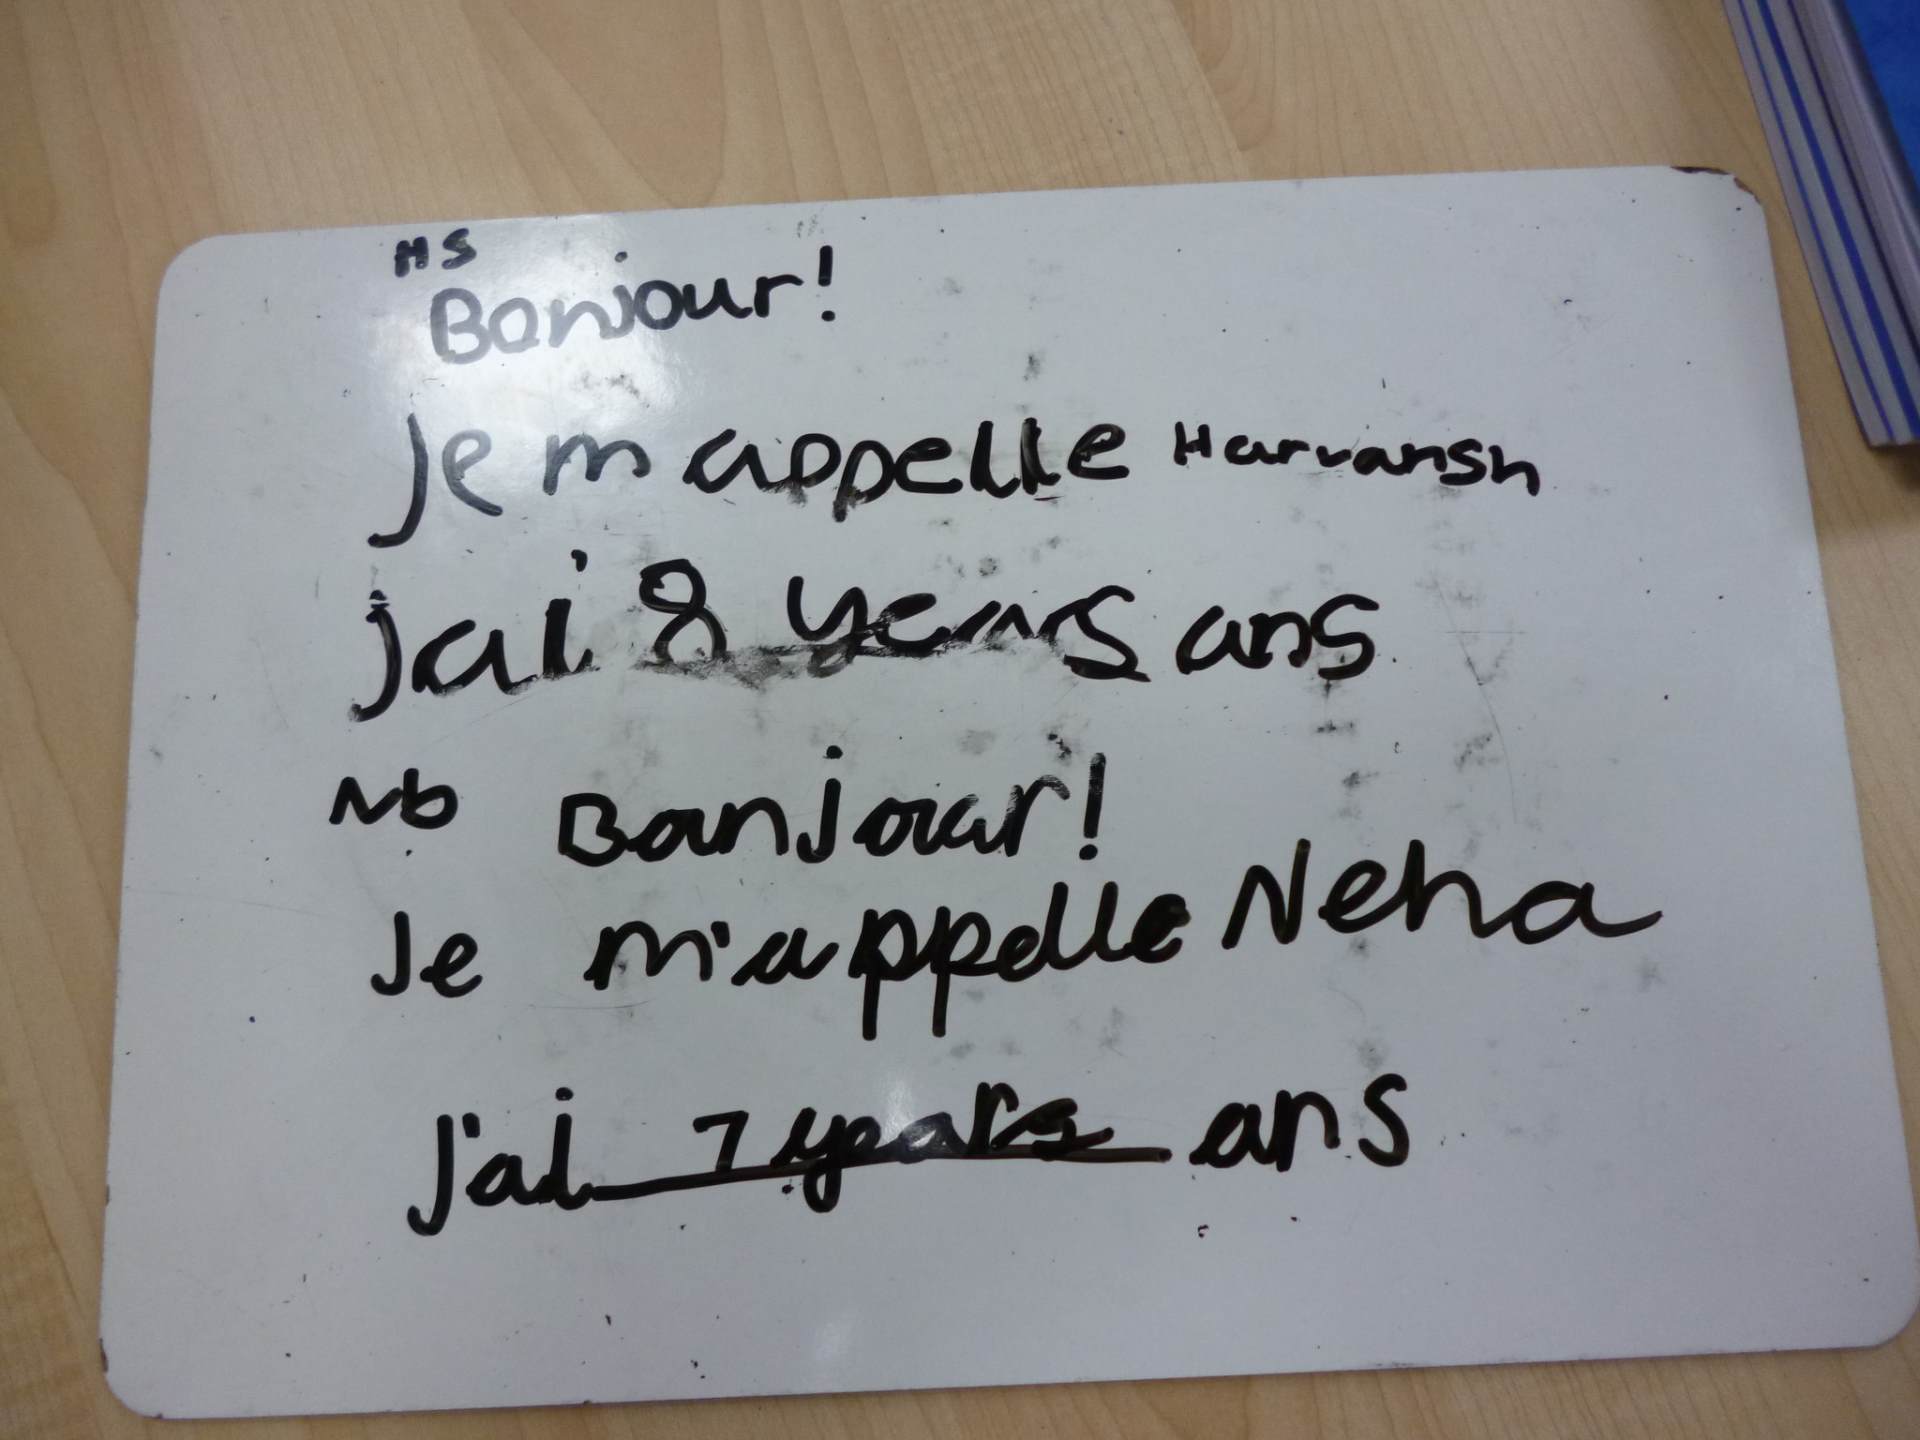 HS
Bonjour!
Je m appelle Harvansh
jai 8 years ans
Nb Bonjour!
Je m'appelle Neha
J'ai 7 years ans